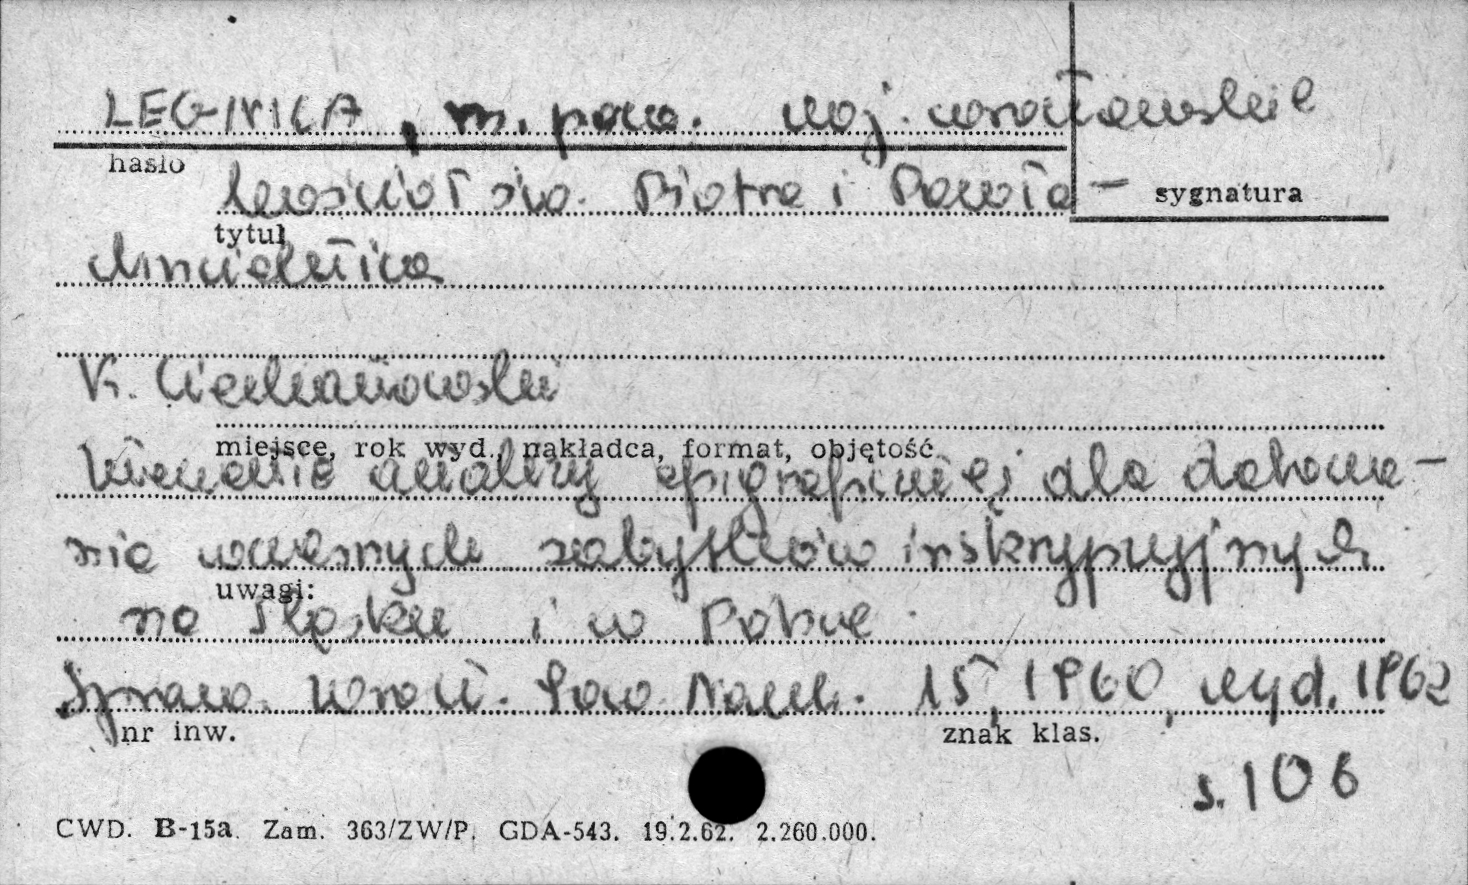 LEGNICA, m. pow. woj. wrocławskie
hasło
kościół św. Piotra i Pawła -
sygnatura
tytuł
chrzcielnica
K. Ciechanowski
miejsce, rok wyd., nakładca, format, objętość
analizy epigraficznej dla datowa-
nia wczesnych zabytków inskrypcyjnych
uwagi:
na Śląsku i w Polsce
Spraw. Wrocł. Tow. Nauk. 15, 1960, wyd. 1962
nr inw.
znak klas.
s. 106
CWD. B-15a. Zam. 363/ZW/P. GDA-543. 19.2.62. 2.260.000.